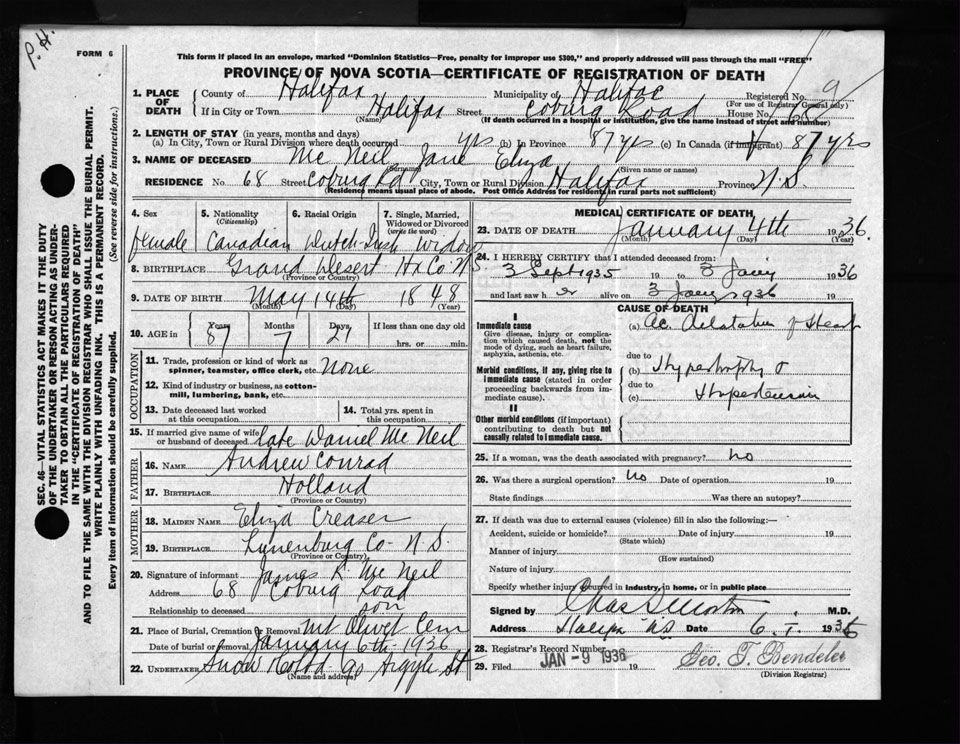 P. H.
FORM 6
This form if placed in an envelope, marked "Dominion Statistics—Free, penalty for improper use $300," and properly addressed will pass through the mail "FREE"
PROVINCE OF NOVA SCOTIA—CERTIFICATE OF REGISTRATION OF DEATH
SEC. 46—VITAL STATISTICS ACT MAKES IT THE DUTY
OF THE UNDERTAKER OR PERSON ACTING AS UNDER-
TAKER TO OBTAIN ALL THE PARTICULARS REQUIRED
IN THE "CERTIFICATE OF REGISTRATION OF DEATH"
AND TO FILE THE SAME WITH THE DIVISION REGISTRAR WHO SHALL ISSUE THE BURIAL PERMIT.
WRITE PLAINLY WITH UNFADING INK. THIS IS A PERMANENT RECORD.
Every item of information should be carefully supplied. (See reverse side for instructions.)
1. PLACE OF DEATH County of Halifax Municipality of Halifax Registered No. 9
(For use of Registrar General only)
If in City or Town Halifax Street Coburg Road House No. 68
(Name) (If death occurred in a hospital or institution, give the name instead of street and number)
2. LENGTH OF STAY (in years, months and days)
(a) In City, Town or Rural Division where death occurred yrs (b) In Province 87 yrs (c) In Canada (if immigrant) 87 yrs
3. NAME OF DECEASED Mc Neil, Jane Eliza
(Surname) (Given name or names)
RESIDENCE No. 68 Street Coburg Rd City, Town or Rural Division Halifax Province N.S.
(Residence means usual place of abode. Post Office Address for residents in rural parts not sufficient)
4. Sex 5. Nationality 6. Racial Origin 7. Single, Married,
(Citizenship) Widowed or Divorced
(write the word)
female Canadian Dutch-Irish Widow
8. BIRTHPLACE Grand Desert Hx Co N.S.
(Province or Country)
9. DATE OF BIRTH May 14th 1848
(Month) (Day) (Year)
10. AGE in Years Months Days If less than one day old
87 7 21 hrs. or min.
OCCUPATION
11. Trade, profession or kind of work as
spinner, teamster, office clerk, etc. none
12. Kind of industry or business, as cotton-
mill, lumbering, bank, etc.
13. Date deceased last worked at this occupation 14. Total yrs. spent in this occupation
15. If married give name of wife or husband of deceased late Daniel Mc Neil
FATHER
16. NAME Andrew Conrad
17. BIRTHPLACE Holland
(Province or Country)
MOTHER
18. MAIDEN NAME Eliza Creaser
19. BIRTHPLACE Lunenburg Co- N.S.
(Province or Country)
20. Signature of informant James K. Mc Neil
Address 68 Coburg Road
Relationship to deceased son
21. Place of Burial, Cremation or Removal Mt Olivet Cem
Date of burial or removal January 6th 1936
22. UNDERTAKER Snow Argyle St
(Name and address)
MEDICAL CERTIFICATE OF DEATH
23. DATE OF DEATH January 4th 1936
(Month) (Day) (Year)
24. I HEREBY CERTIFY that I attended deceased from:
3 Sept 1935 19 to 3 Jany 1936
and last saw her alive on 3 Jany 1936 19
CAUSE OF DEATH
I
Immediate cause
Give disease, injury or complica-
tion which caused death, not the
mode of dying, such as heart failure,
asphyxia, asthenia, etc.
(a) Ac. Dilatation of Heart
due to
Morbid conditions, if any, giving rise to
immediate cause (stated in order
proceeding backwards from im-
mediate cause).
(b) Hypertrophy &
due to
(c) Hypertension
II
Other morbid conditions (if important)
contributing to death but not
causally related to immediate cause.
25. If a woman, was the death associated with pregnancy? no
26. Was there a surgical operation? no Date of operation 19
State findings Was there an autopsy?
27. If death was due to external causes (violence) fill in also the following:—
Accident, suicide or homicide? Date of injury 19
(State which)
Manner of injury
(How sustained)
Nature of injury
Specify whether injury occurred in industry, in home, or in public place
Signed by Chas M.D.
Address Halifax N.S. Date 6. 1. 1936
28. Registrar's Record Number
29. Filed JAN -9 1936 19 Geo. T. Bendeler
(Division Registrar)